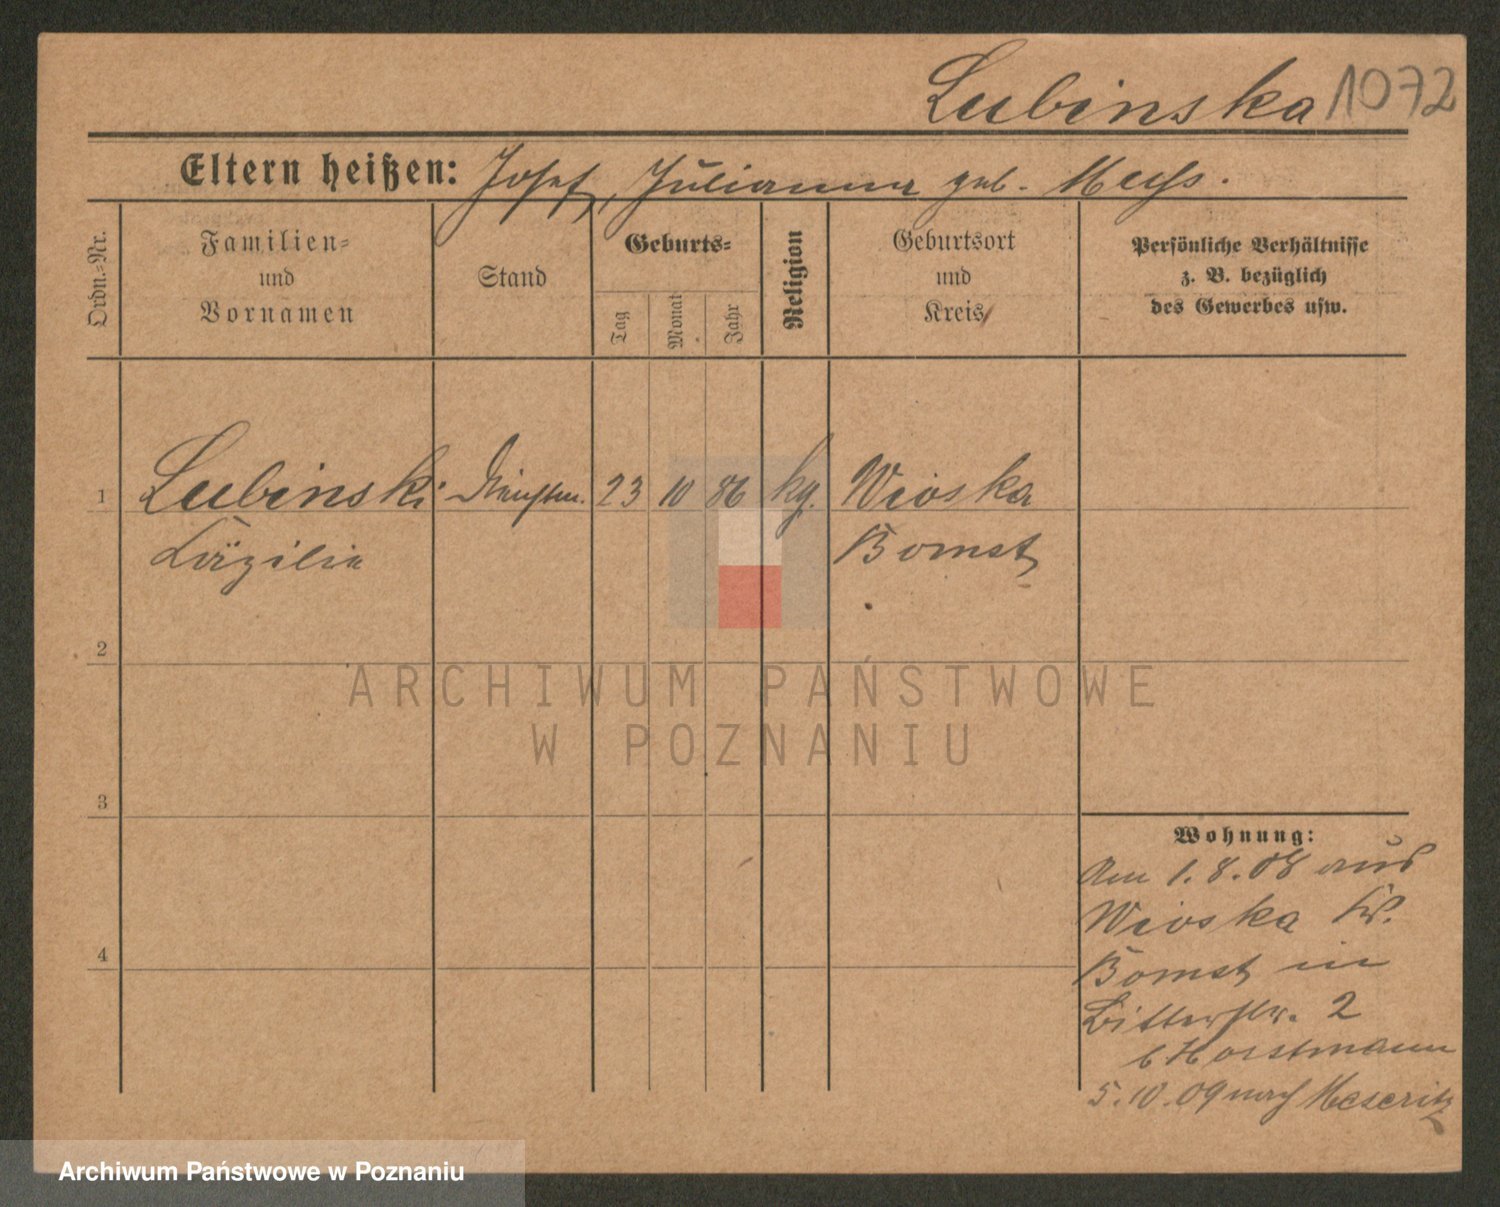 Lubinska 1072
Eltern heißen: Josef, Julianna geb.
Ordn.-Nr.
Familien-
und
Vornamen
Stand
Geburts-
Tag
Monat
Jahr
Religion
Geburtsort
und
Kreis
Persönliche Verhältnisse
z. B. bezüglich
des Gewerbes usw.
1 Lubinski 23 10 86 kg. Wioska
Cäzilie Bomst
2
3
4
Wohnung:
Am 1.8.08 aus
Wioska Kr.
Bomst in
Ritterstr. 2
b Horstmann
5.10.09 nach Meseritz
ARCHIWUM PAŃSTWOWE
W POZNANIU
Archiwum Państwowe w Poznaniu